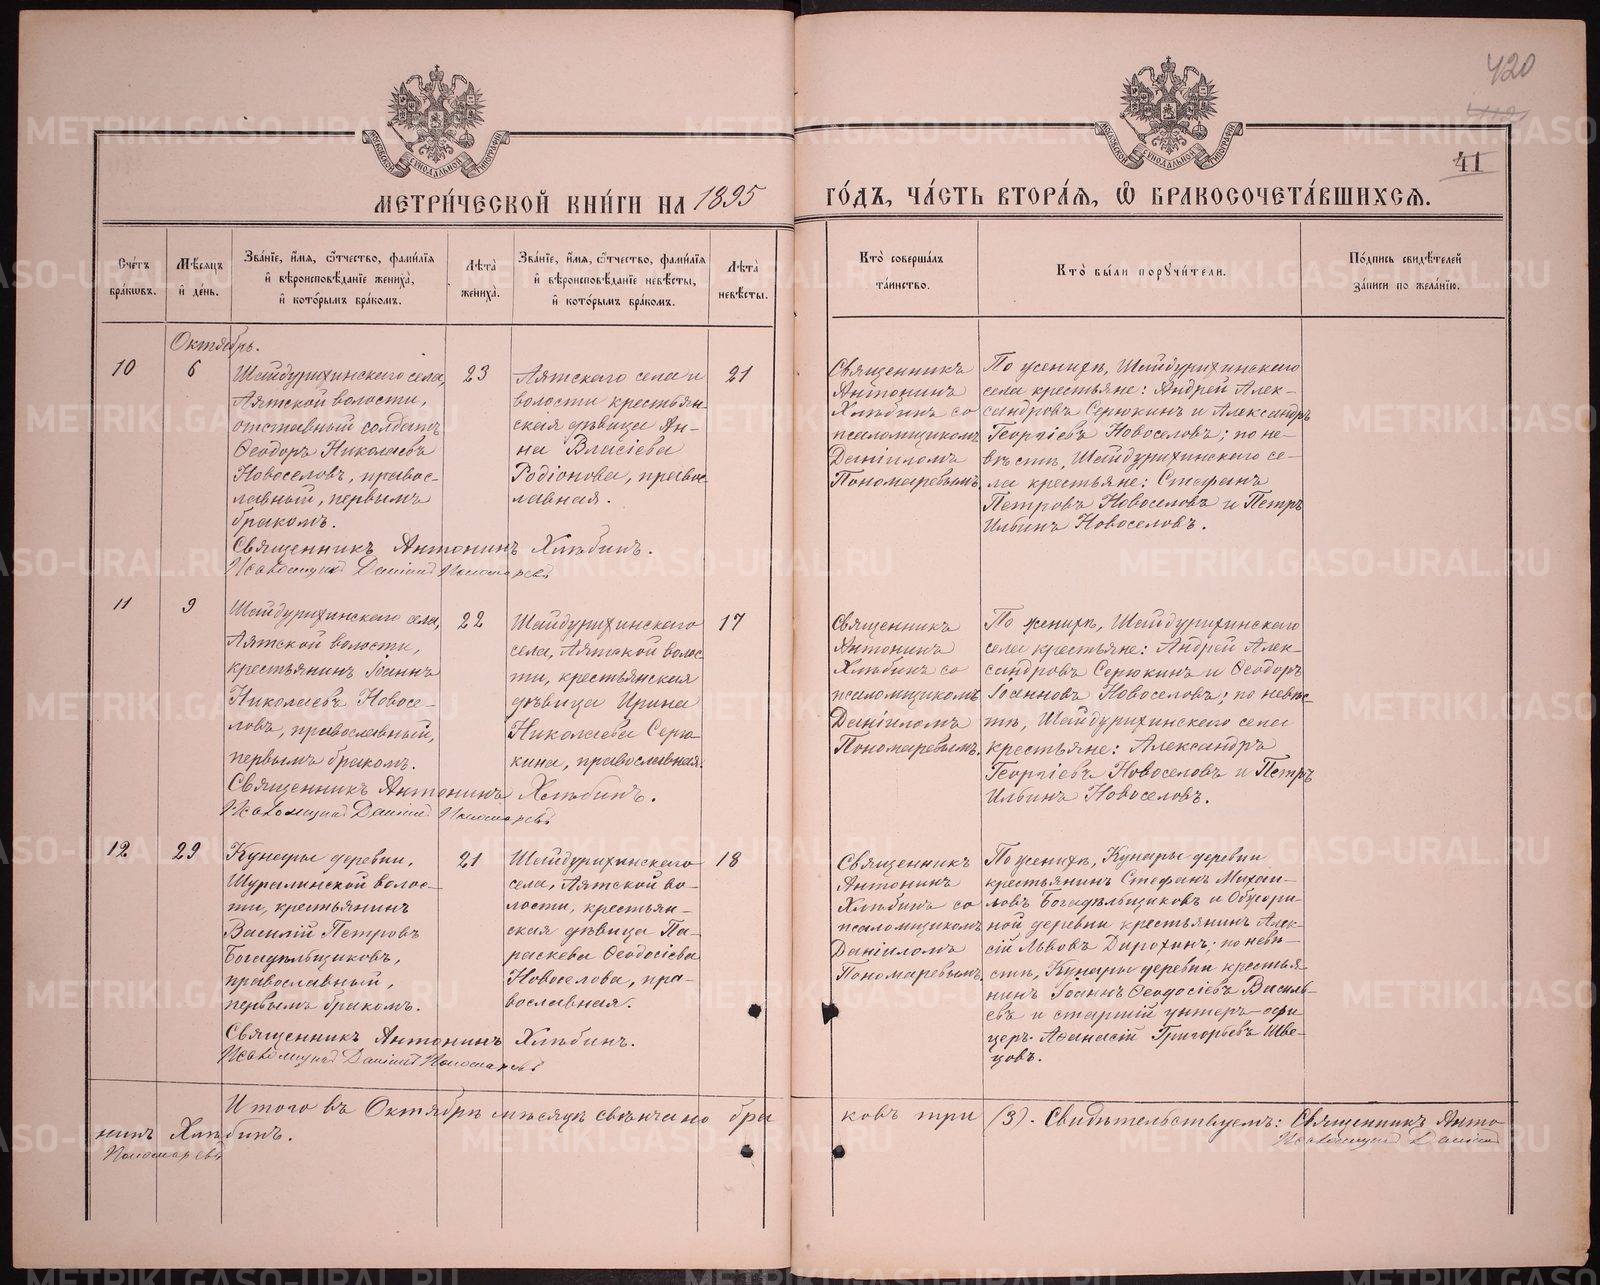 420
41
МОСКОВСКОЙ СѴНОДАЛЬНОЙ ТИПОГРАФІИ
МОСКОВСКОЙ СѴНОДАЛЬНОЙ ТИПОГРАФІИ
МЕТРИ́ЧЕСКОЙ КНИ́ГИ НА 1895 ГО́ДЪ, ЧА́СТЬ ВТОРА́Я, Ѽ БРАКОСОЧЕТА́ВШИХСЯ.
Сче́тъ бра́кѡвъ.
Мѣ́сяцъ и҆ де́нь.
Зва́нїе, и҆́мя, ѻ҆́тчество, фами́лїя и҆ вѣроисповѣ́данїе жениха̀, и҆ кото́рымъ бра́комъ.
Лѣ̑та жениха̀.
Зва́нїе, и҆́мя, ѻ҆́тчество, фами́лїя и҆ вѣроисповѣ́данїе невѣ́сты, и҆ кото́рымъ бра́комъ.
Лѣ̑та невѣ́сты.
Кто̀ соверша́лъ та́инство.
Кто̀ бы́ли порꙋчи́тели.
По́дпись свидѣ́телей за́писи по жела́нїю.
Октябрь.
10
6
Шайдурихинскаго села,
Аятской волости,
отставный солдатъ
Ѳеодоръ Николаевъ
Новоселовъ, правос-
лавный, первымъ
бракомъ.
23
Аятскаго села и
волости крестьян-
ская дѣвица Ан-
на Власіева
Родіонова, правос-
лавная.
21
Священникъ
Антонинъ
Хлѣбинъ со
псаломщикомъ
Даніиломъ
Пономаревымъ.
По женихѣ, Шайдурихинскаго
села крестьяне: Андрей Алек-
сандровъ Серюкинъ и Александръ
Георгіевъ Новоселовъ; по не-
вѣстѣ, Шайдурихинскаго се-
ла крестьяне: Стефанъ
Петровъ Новоселовъ и Петръ
Ильинъ Новоселовъ.
Священникъ Антонинъ Хлѣбинъ.
Псаломщикъ Даніилъ Пономаревъ
11
9
Шайдурихинскаго села,
Аятской волости,
крестьянинъ Іоаннъ
Николаевъ Новосе-
ловъ, православный,
первымъ бракомъ.
22
Шайдурихинскаго
села, Аятской волос-
ти, крестьянская
дѣвица Ирина
Николаева Серю-
кина, православная.
17
Священникъ
Антонинъ
Хлѣбинъ со
псаломщикомъ
Даніиломъ
Пономаревымъ.
По женихѣ, Шайдурихинскаго
села крестьяне: Андрей Алек-
сандровъ Серюкинъ и Ѳеодоръ
Іоанновъ Новоселовъ; по невѣс-
тѣ, Шайдурихинскаго села
крестьяне: Александръ
Георгіевъ Новоселовъ и Петръ
Ильинъ Новоселовъ.
Священникъ Антонинъ Хлѣбинъ.
Псаломщикъ Даніилъ Пономаревъ
12
29
Кунары деревни,
Шуралинской волос-
ти, крестьянинъ
Василій Петровъ
Богадѣльщиковъ,
православный,
первымъ бракомъ.
21
Шайдурихинскаго
села, Аятской во-
лости, крестьян-
ская дѣвица Па-
раскева Ѳеодосіева
Новоселова, пра-
вославная.
18
Священникъ
Антонинъ
Хлѣбинъ со
псаломщикомъ
Даніиломъ
Пономаревымъ.
По женихѣ, Кунары деревни
крестьянинъ Стефанъ Михаи-
ловъ Богадѣльщиковъ и
ной деревни крестьянинъ Алек-
сій Львовъ Дирохинъ; по невѣ-
стѣ, Кунары деревни крестья-
нинъ Іоаннъ Ѳеодосіевъ Василь-
евъ и старшій унтеръ-офи-
церъ Аѳанасій Григорьевъ Шве-
цовъ.
Священникъ Антонинъ Хлѣбинъ.
Псаломщикъ Даніилъ Пономаревъ
Итого въ Октябрѣ мѣсяцѣ свѣнчано браковъ три (3). Свидѣтельствуемъ: Священникъ Анто-
нинъ Хлѣбинъ.
Псаломщикъ Даніилъ
Пономаревъ
METRIKI.GASO-URAL.RU